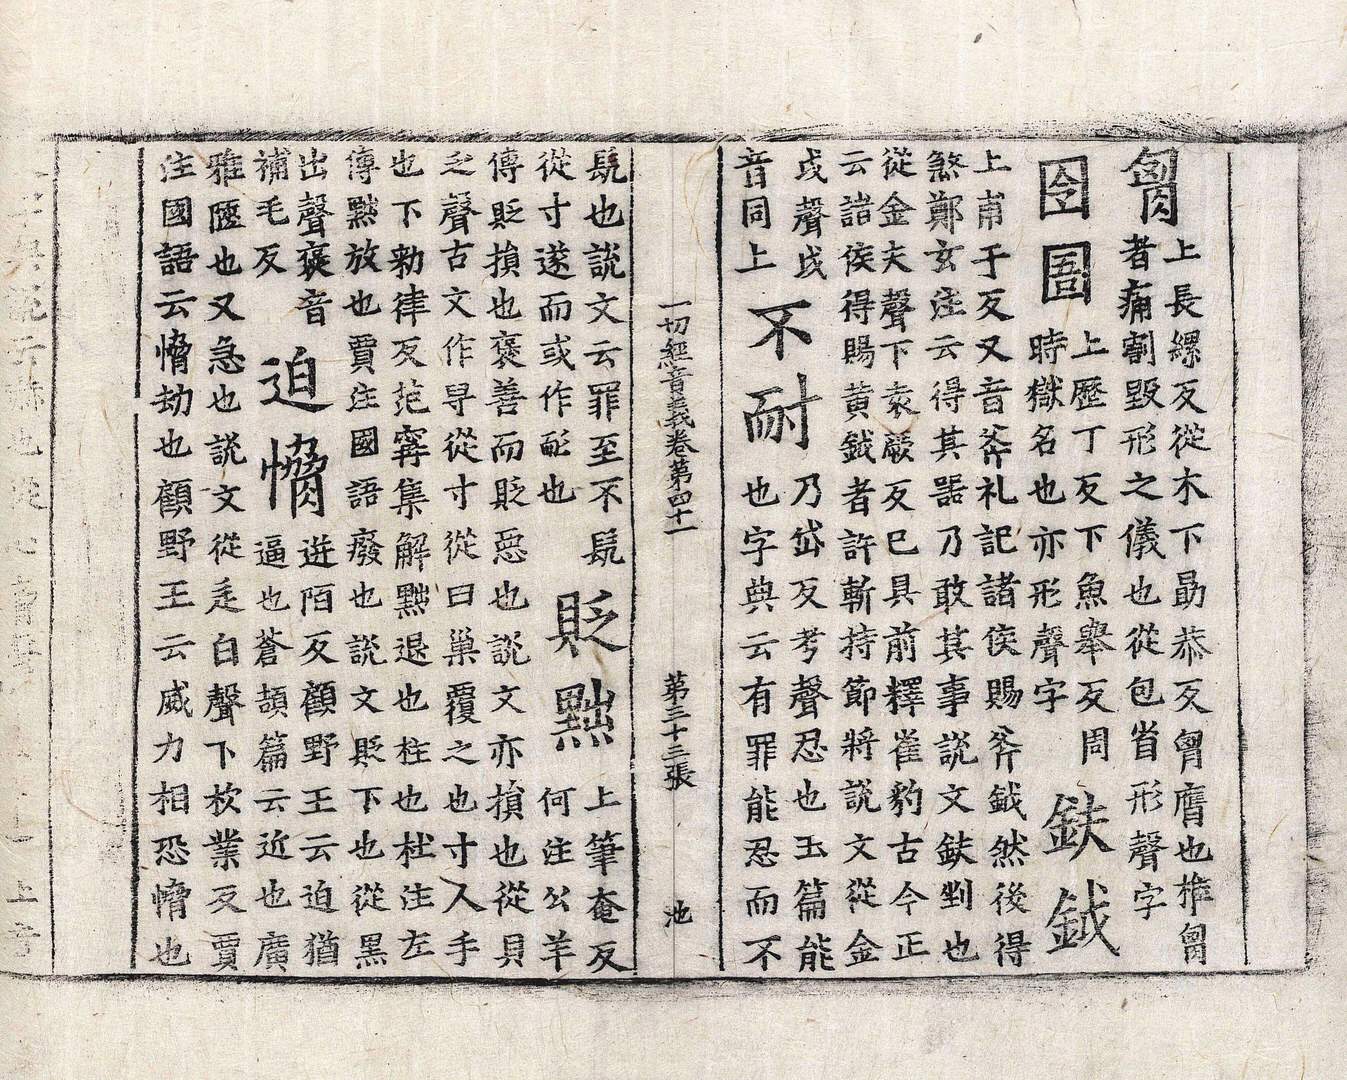 胷
上長縲反從木下勗恭反胷膺也椎胷
者痛割毀形之儀也從包省形聲字
囹圄
上歷丁反下魚舉反周
時獄名也亦形聲字
鈇鉞
上甫于反又音斧礼記諸侯賜斧鉞然後得
煞鄭玄注云得其器乃敢其事說文鈇剉也
從金夫聲下袁厥反已具前釋崔豹古今正
云諸侯得賜黃鉞者許斬持節將說文從金
戉聲戉
音同上
不耐
乃岱反考聲忍也玉篇能
也字典云有罪能忍而不
一切經音義卷第四十一 第三十三張 池
髡也說文云罪至不髡
從寸遂而或作耏也
貶黜
上筆奄反
何注公羊
傳貶損也褒善而貶惡也說文亦損也從貝
乏聲古文作㝵從寸從曰巢覆之也寸人手
也下勑律反范甯集解黜退也柱也杜注左
傳黜放也賈注國語廢也說文貶下也從黑
出聲褒音
補毛反
迫愶
迸陌反顧野王云迫猶
逼也蒼頡篇云近也廣
雅陿也又急也說文從辵白聲下杴業反賈
注國語云愶劫也顧野王云威力相恐愶也